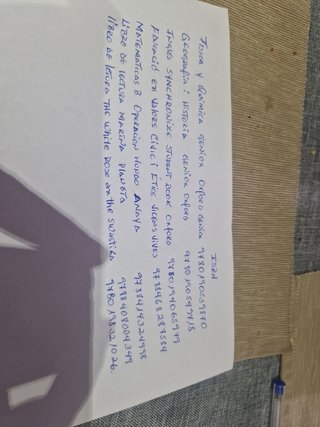 ISBN
Fisica y Quimica Geniox Oxford 9780190531870
Geografia i Historia Geniox Oxford 9780190597715
Ingles Synchronize Student Book Oxford 9780194065979
Educació en Valors Civic i Étics Vicens Vives 9788468287584
Matematicas B Operacion Mundo Anaya 9788414324998
Llibro de lectura Marina Planeta 9788408004349
Llibro de lectura The White Rose on the swastika 9780198321026.